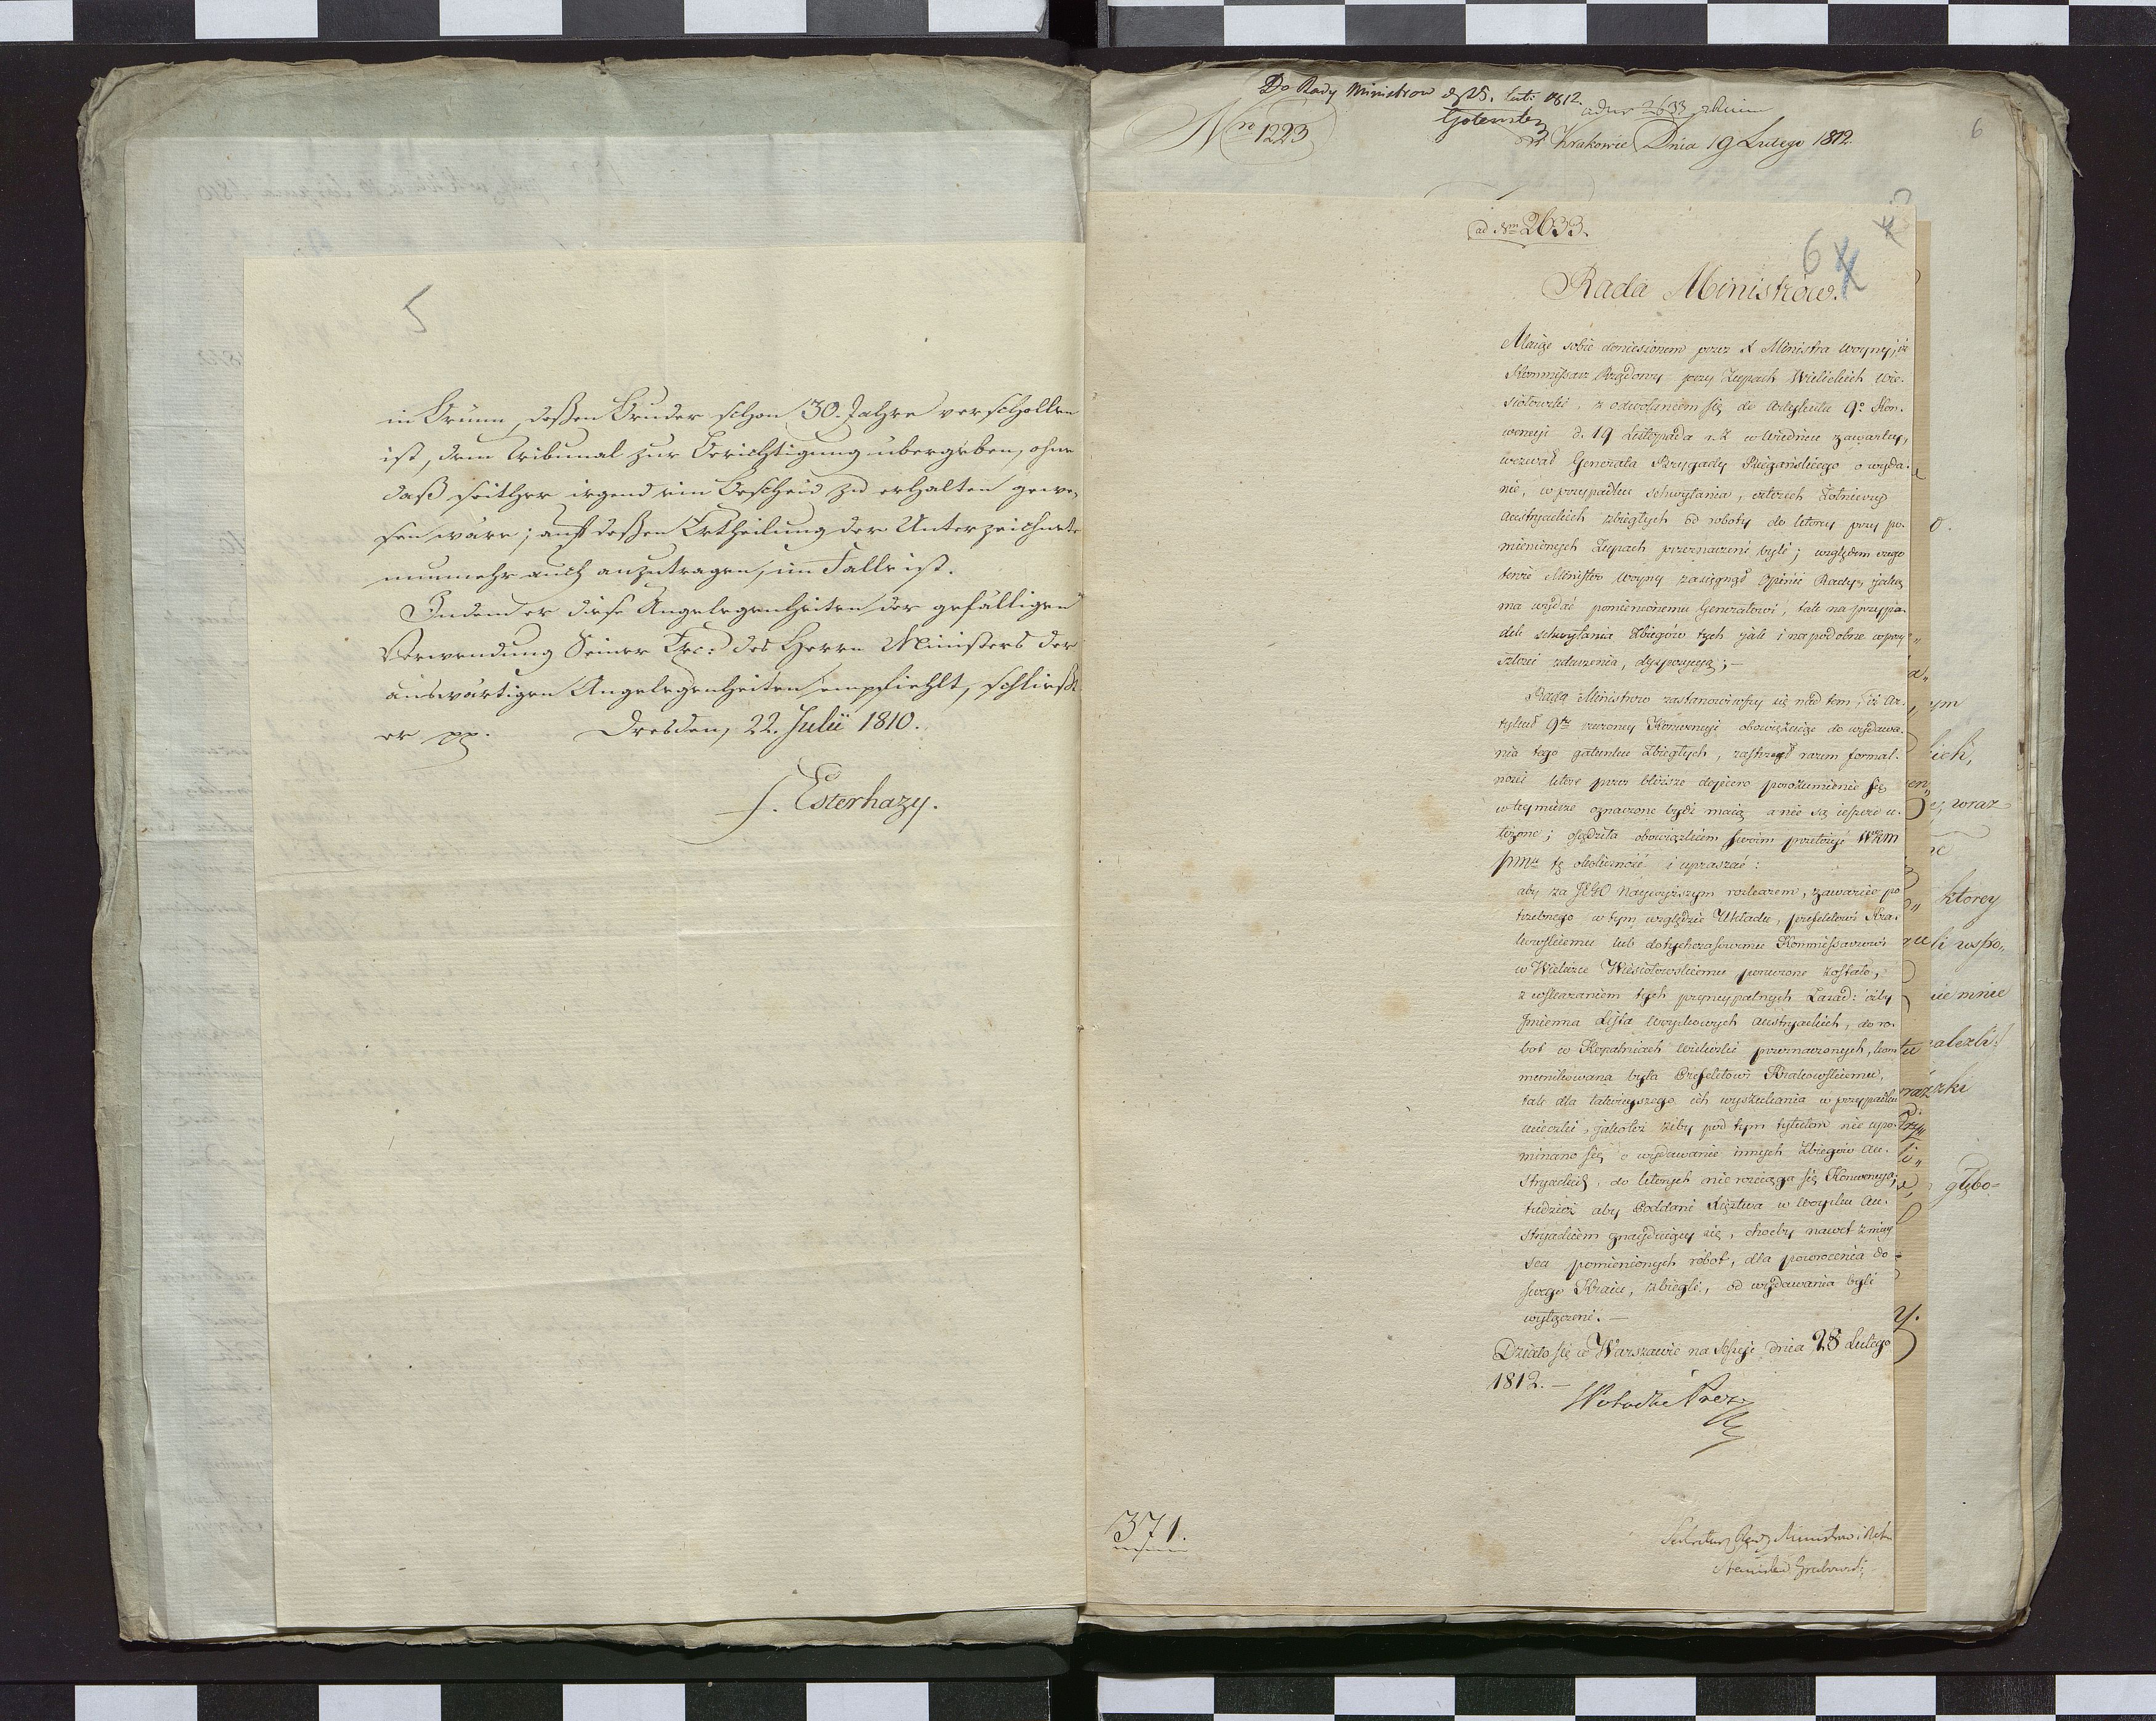 5
in Brünn, deßen Bruder schon 30. Jahre verschollen
ist, dem Tribunal zur Berichtigung übergeben, ohne
daß seither irgend ein Bescheid zu erhalten gewe-
sen wäre; auf deßen Ertheilung der Unterzeichnete
nunmehr auch anzutragen, im Falle ist.
Indem er diese Angelegenheiten der gefälligen
Verwendung Seiner Exc: des Herrn Ministers der
auswärtigen Angelegenheiten empfiehlt, schließt
er pp. Dresden, 22. Julii 1810.
f. Esterhazy.
Do Rady Ministrow d. 25. Lut: 1812.
2633
Nro 1223
w Krakowie Dnia 19 Lutego 1812.
6
ad Nm 2633.
6
Rada Ministrów.
Maiąc sobie doniesionem przez JX Ministra Woyny, iż
Kommissarz Rządowy przy Żupach Wielickich Wie-
siołowski, z odwołaniem się do Artykułu 9o Kon-
wencyi d. 19 Listopada r. z. w Wiedniu zawartey,
wezwał Generała Brygady Biegańskiego o wyda-
nie, w przypadku schwytania, czterech Żołnierzy
Austryackich zbiegłych od roboty do ktorey przy po-
mienionych Żupach przeznaczeni byli; względem czego
tenże Minister Woyny zasięgnął Opinii Rady, jaką
ma wydać pomienionemu Generałowi, tak na przypa-
dek schwytania Zbiegów tych jak i na podobne w przy-
szłości zdarzenia, dyspozycyą; —
Rada Ministrow zastanowiwszy się nad tem, iż Ar-
tykuł 9ty rzeczoney Konwencyi obowiązuiąc do wydawa-
nia tego gatunku Zbiegłych, zastrzegł razem formal-
ności ktore przez bliższe dopiero porozumienie się
w tey mierze oznaczone bydź maią a nie są ieszcze u-
łożone; osądziła obowiązkiem swoim przełożyć WKM
PMu tę okoliczność i upraszać:
aby za JEGO Naywyższym rozkazem, zawarcie po
trzebnego w tym względzie Układu, Prefektowi Kra-
kowskiemu lub dotychczasowemu Kommissarzowi
w Wieliczce Wiesiołowskiemu poruczone zostało,
z wskazaniem tych pryncypalnych Zasad: iżby
Imienna Lista Woyskowych Austryackich, do ro-
bot w Kopalniach Wieliczki przeznaczonych, kom
munikowana była Prefektowi Krakowskiemu,
tak dla łatwieyszego ich wyszukania w przypadku
ucieczki, jakoteż żeby pod tym tytułem nie upo-
minano się o wydawanie innych Zbiegów Au-
stryackich, do ktorych nie rozciąga się Konwencya;
tudzież aby Poddani Xięztwa w Woysku Au-
stryackiem znayduiący się, choćby nawet z miey
sca pomienionych robot, dla powrocenia do
swego Kraiu, zbiegli, od wydawania byli
wyłączeni. —
Działo się w Warszawie na Sessyi dnia 28 Lutego
1812. —
Potocki Prez
371.
Sekretarz Rady Ministrow i Stanu
Stanisław Grabowski
ktorey
wraz
głębo=